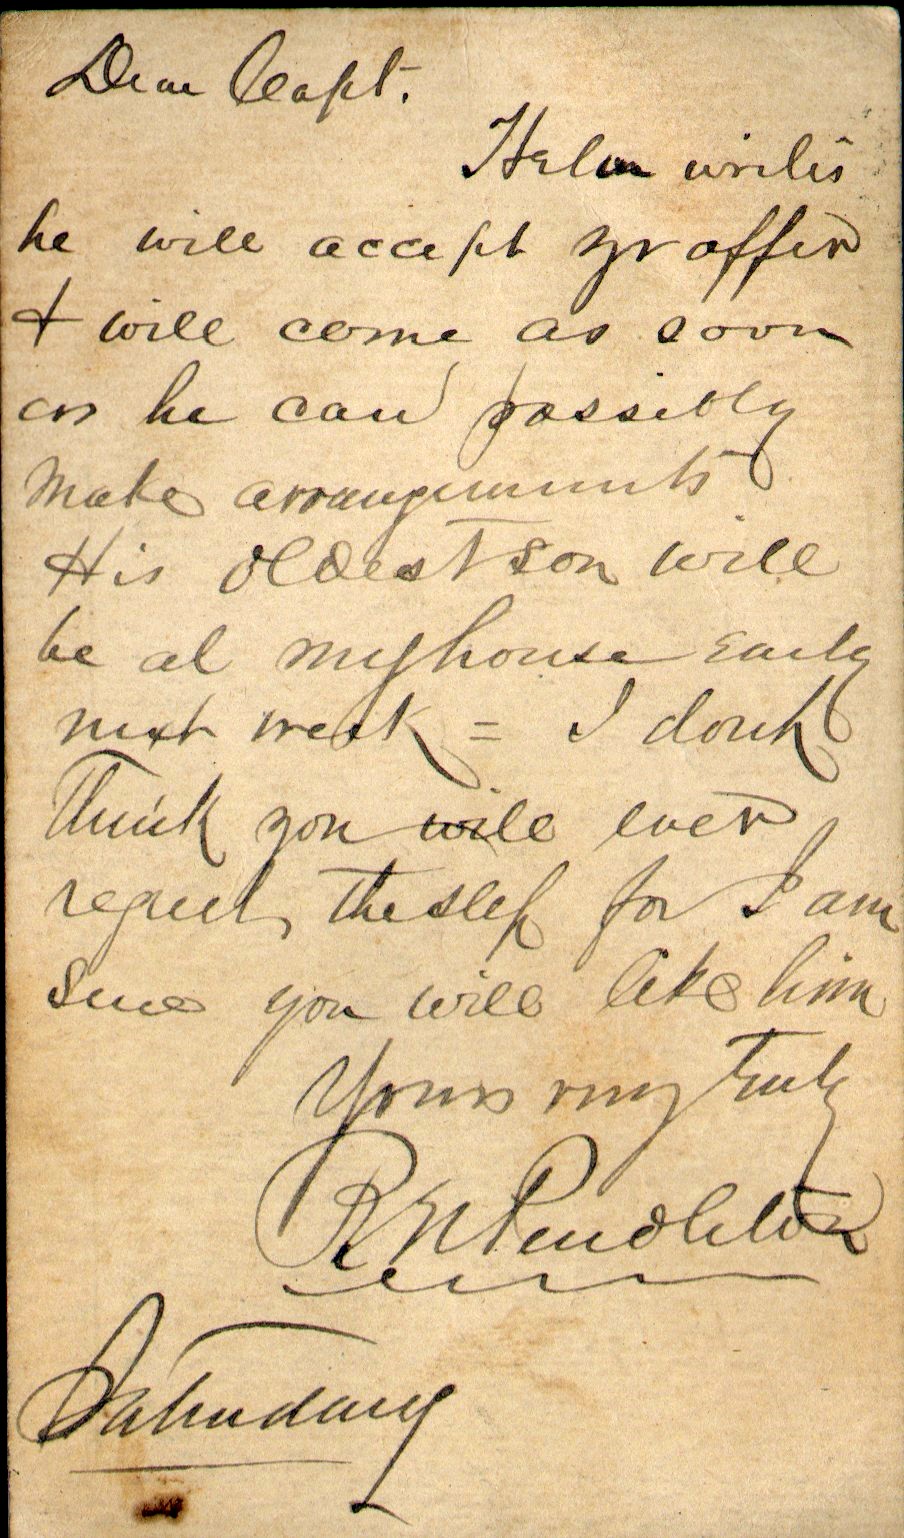 Dear Capt.
Helm writes
he will accept yr offer
& will come as soon
as he can possibly
make arrangements
His oldest son will
be at my house early
next week = I dont
Think you will ever
regret, the step for I am
sure you will like him
Yours very truly
R N Pendleton
Saturday